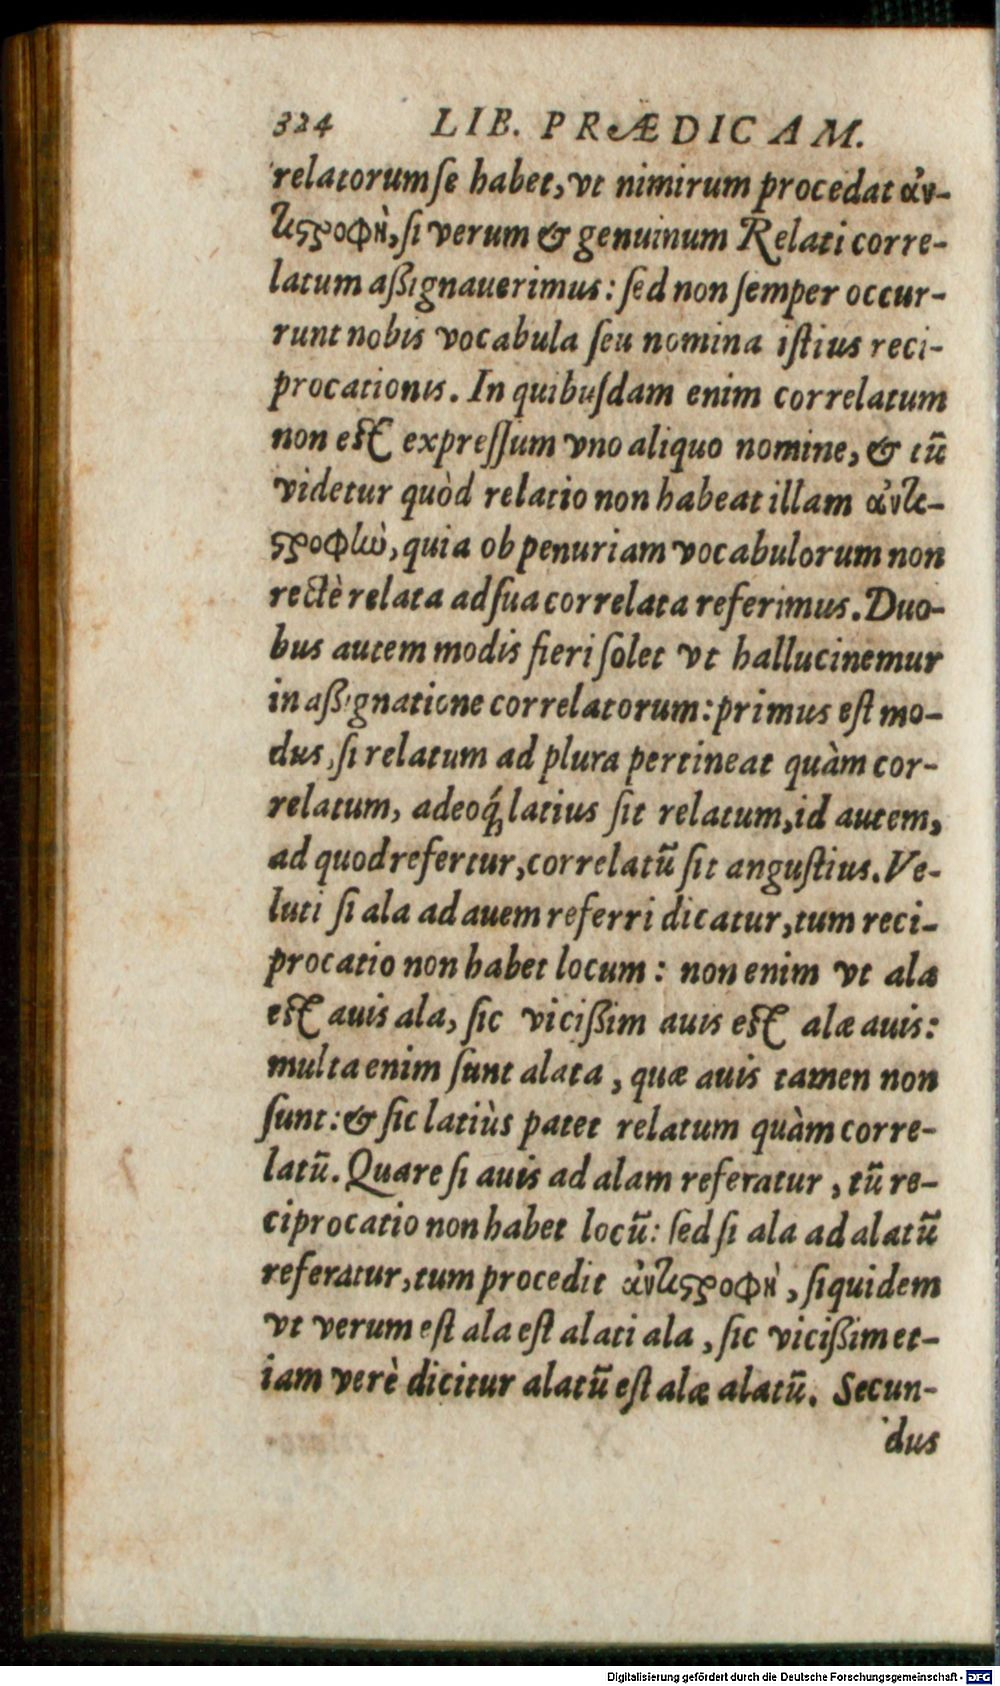 324 LIB. PRÆDICAM.
relatorum ſe habet, vt nimirum procedat ἀν-
τιςροφὴ, ſi verum & genuinum Relati corre-
latum aßignauerimus: ſed non ſemper occur-
runt nobis vocabula ſeu nomina iſtius reci-
procationis. In quibuſdam enim correlatum
non eſt expreſſum vno aliquo nomine, & tū
videtur quòd relatio non habeat illam ἀντι-
ςροφὴν, quia ob penuriam vocabulorum non
rectè relata ad ſua correlata referimus. Duo-
bus autem modis fieri ſolet vt hallucinemur
in aßignatione correlatorum: primus eſt mo-
dus, ſi relatum ad plura pertineat quàm cor-
relatum, adeoq́; latius ſit relatum, id autem,
ad quod refertur, correlatū ſit anguſtius. Ve-
luti ſi ala ad auem referri dicatur, tum reci-
procatio non habet locum: non enim vt ala
eſt auis ala, ſic vicißim auis eſt alæ auis:
multa enim ſunt alata, quæ auis tamen non
ſunt: & ſic latiùs patet relatum quàm corre-
latū. Quare ſi auis ad alam referatur, tū re-
ciprocatio non habet locū: ſed ſi ala ad alatū
referatur, tum procedit ἀντιςροφὴ, ſiquidem
vt verum eſt ala eſt alati ala, ſic vicißim et-
iam verè dicitur alatū eſt alæ alatū. Secun-
dus
Digitalisierung gefördert durch die Deutsche Forschungsgemeinschaft - DFG